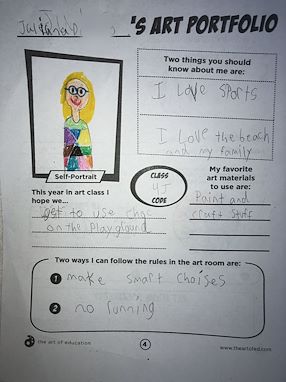 'S ART PORTFOLIO
Two things you should
know about me are:
I Love Sports
I Love the beach
and my family
Self-Portrait
CLASS
4J
CODE
This year in art class I
hope we...
get to use chac
on the Playground
My favorite
art materials
to use are:
Paint and
craft stuff
Two ways I can follow the rules in the art room are:
1 make smart choises
2 no running
the art of education
4
www.theartofed.com